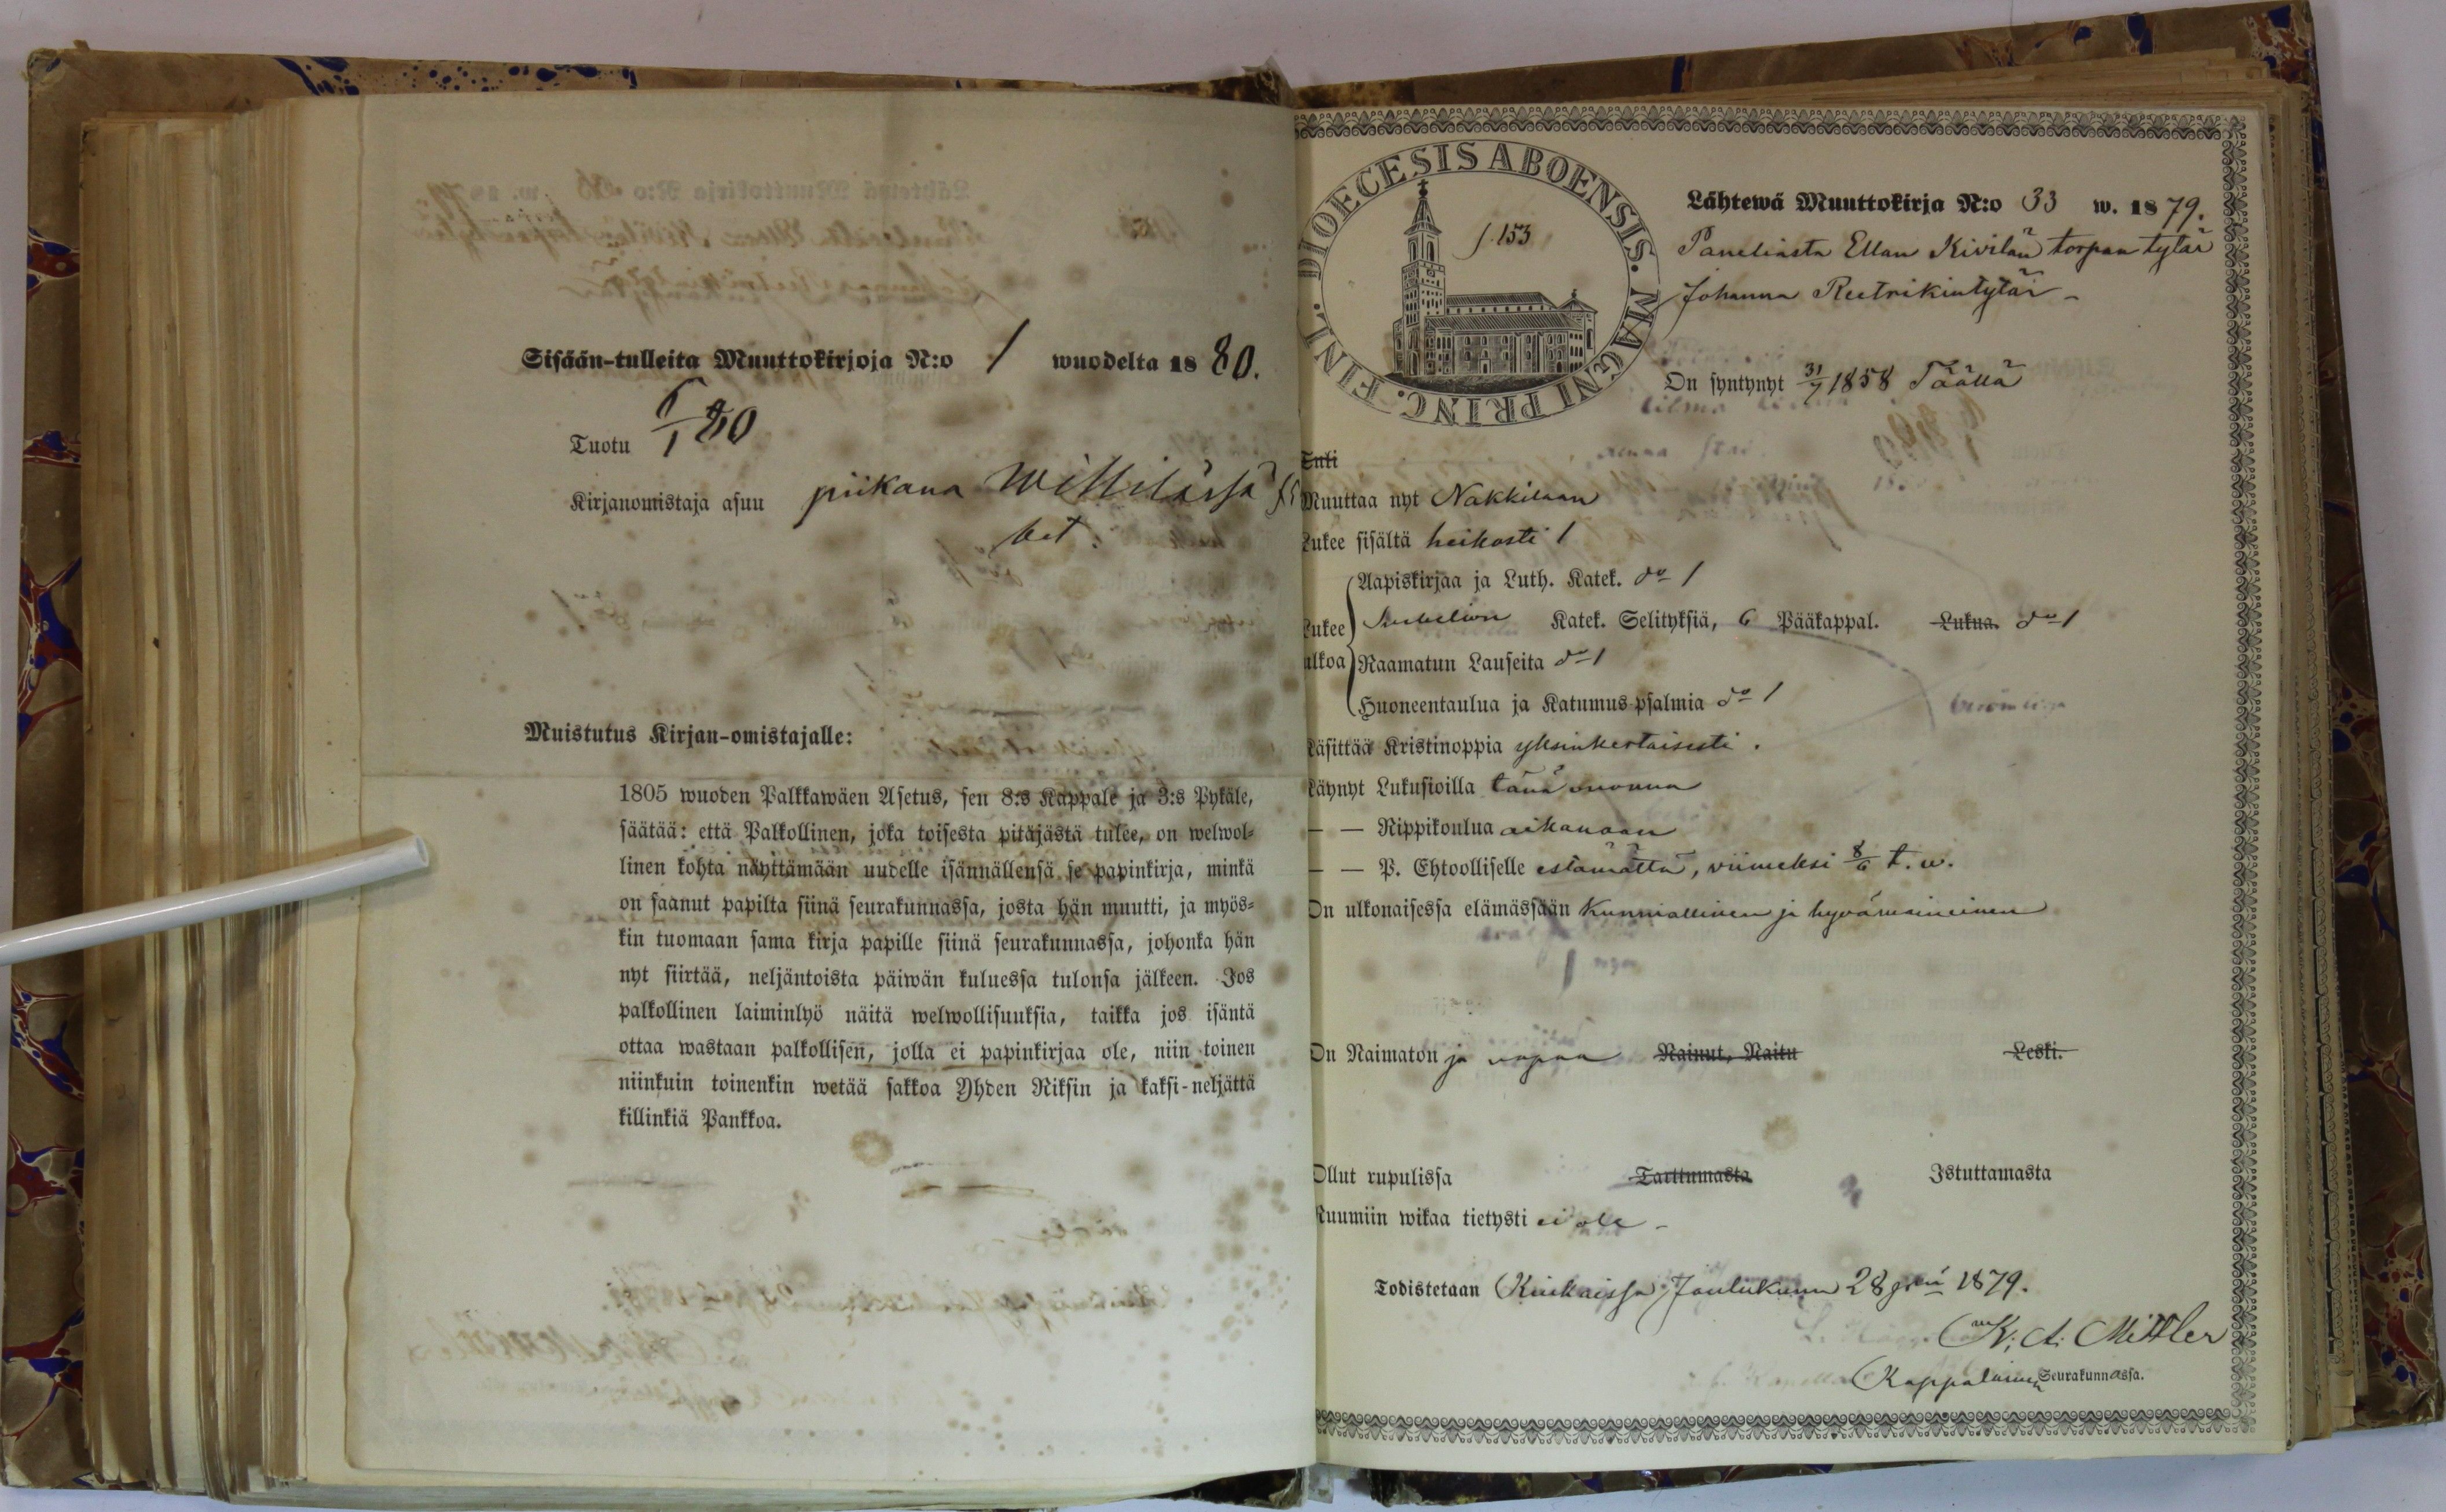 Sisään-tulleita Muuttokirjoja N:o 1 wuodelta 1880.
Tuotu 6/1 80
Kirjanomistaja asuu piikana Willilässä
bet:
Muistutus Kirjan-omistajalle:
1805 wuoden Palkkawäen Asetus, sen 8:s Kappale ja 3:s Pykäle,
säätää: että Palkollinen, joka toisesta pitäjästä tulee, on welwol-
linen kohta näyttämään uudelle isännällensä se papinkirja, minkä
on saanut papilta siinä seurakunnassa, josta hän muutti, ja myös-
kin tuomaan sama kirja papille siinä seurakunnassa, johonka hän
nyt siirtää, neljäntoista päiwän kuluessa tulonsa jälkeen. Jos
palkollinen laiminlyö näitä welwollisuuksia, taikka jos isäntä
ottaa wastaan palkollisen, jolla ei papinkirjaa ole, niin toinen
niinkuin toinenkin wetää sakkoa Yhden Riksin ja kaksi-neljättä
killinkiä Pankkoa.
DIOECESIS ABOENSIS. MAGNI PRINC. FINL.
f. 153
Lähtewä Muuttokirja N:o 33 w. 1879.
Paneliasta Ellan Kivilän torpan tytär
Johanna Reetrikintytär
On syntynyt 31/7 1858 Täällä
Tuli
Muuttaa nyt Nakkilaan
Lukee sisältä heikosti 1
Aapiskirjaa ja Luth. Katek. do 1
Lukee Katek. Selityksiä, 6 Pääkappal. Lukua. do 1
ulkoa Raamatun Lauseita do 1
Huoneentaulua ja Katumus-psalmia do 1
Käsittää Kristinoppia yksinkertaisesti.
Käynyt Lukusioilla tänä vuonna
— — Rippikoulua aikanaan
— — P. Ehtoolliselle estämättä, viimeksi 8/6 t. w.
On ulkonaisessa elämässään Kunniallinen ja hyvämaineinen
On Naimaton ja vapaa Nainut, Naitu Leski.
Ollut rupulissa Tarttumasta Istuttamasta
Ruumiin wikaa tietysti ei ole
Todistetaan Kiukaissa Joulukuun 28 pnä 1879.
K. A. Mittler
Kappalainen Seurakunnassa.